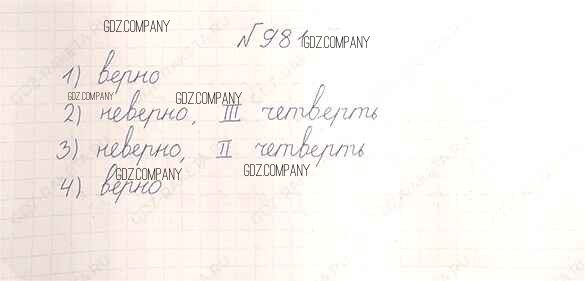 GDZ.COMPANY
№981 GDZ.COMPANY
1) верно
GDZ.COMPANY GDZ.COMPANY
2) неверно, III четверть
3) неверно, II четверть
GDZ.COMPANY GDZ.COMPANY
4) верно